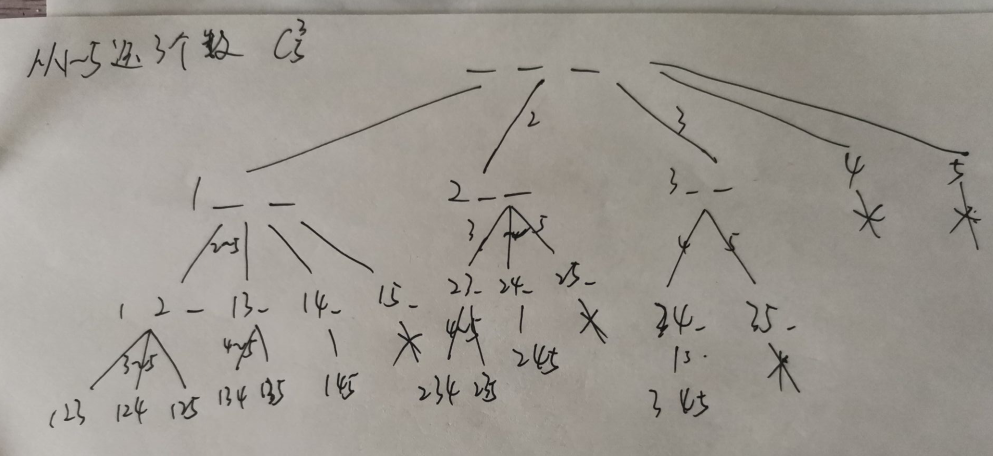 从1~5选3个数 C₅³
_ _ _
2 3
1 _ _ 2 _ _ 3 _ _ 4 5
2~5 3 4 5 4 5
1 2 _ 13_ 14_ 15_ 23_ 24_ 25_ 34_ 35_
3~5 4~5 4~5 5
123 124 125 134 135 145 234 235 245 345